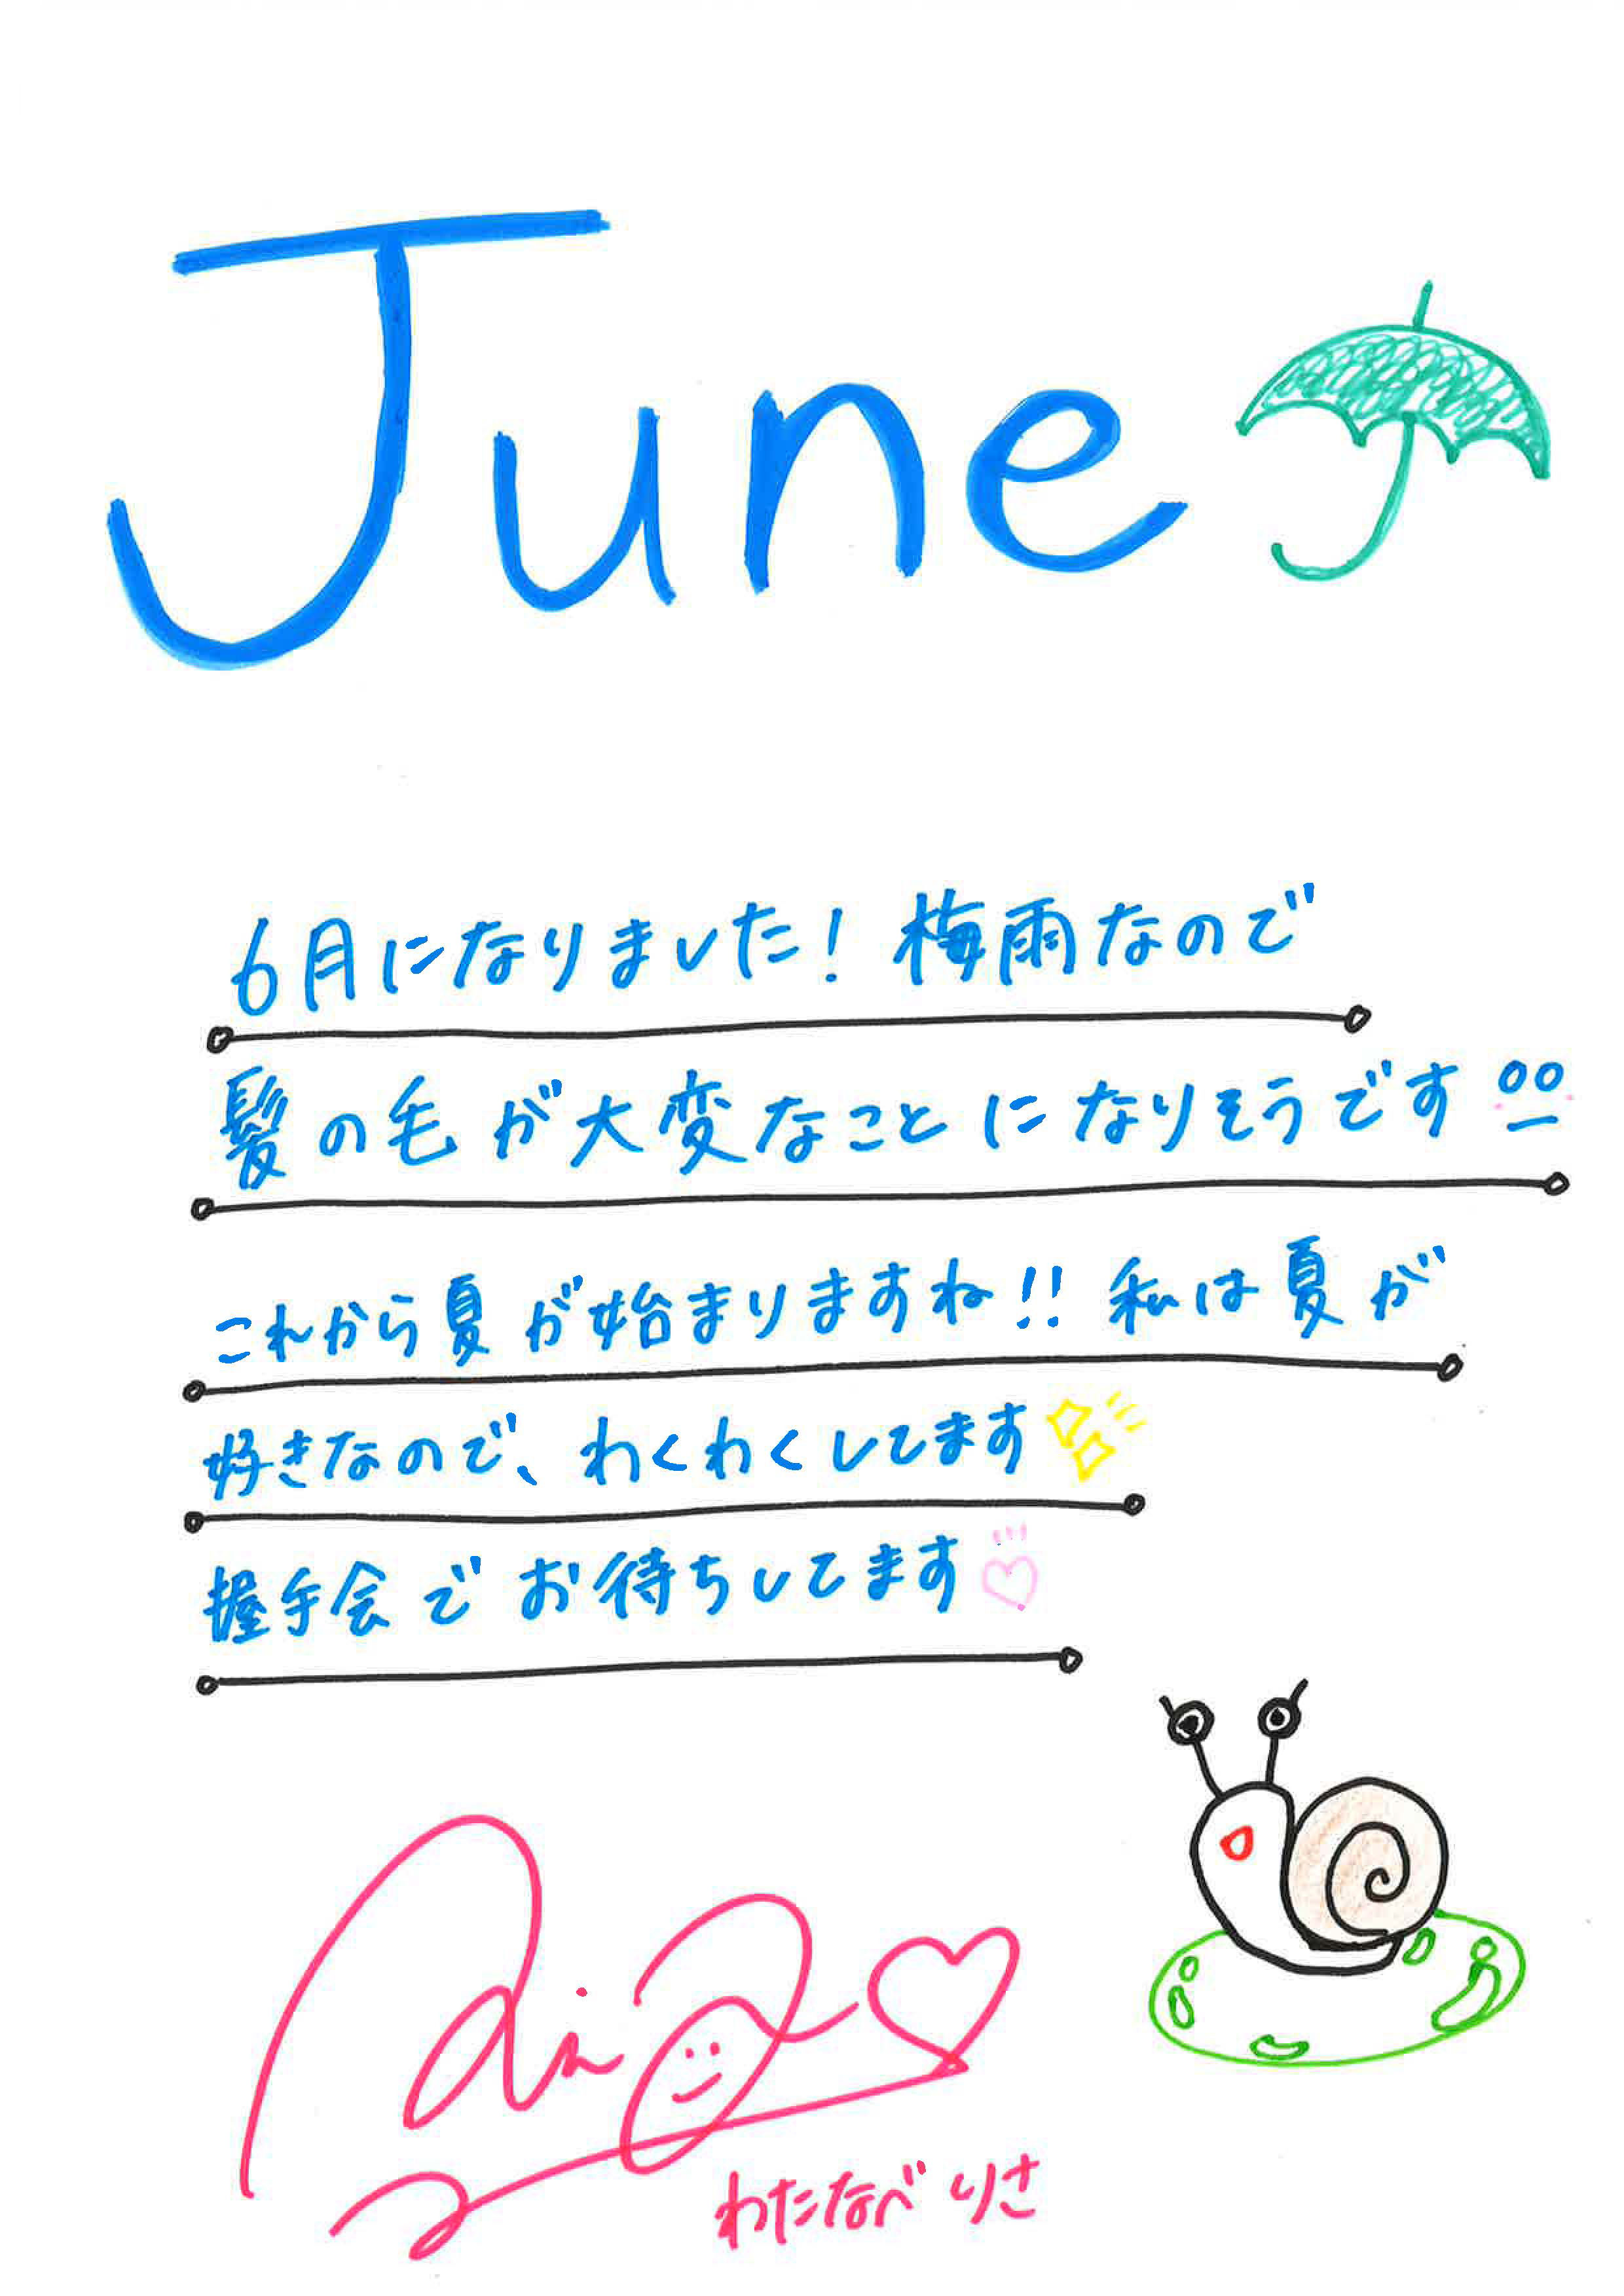 June
6月になりました！梅雨なので
髪の毛が大変なことになりそうです
これから夏が始まりますね!! 私は夏が
好きなので、わくわくしてます
握手会でお待ちしてます
わたなべりさ